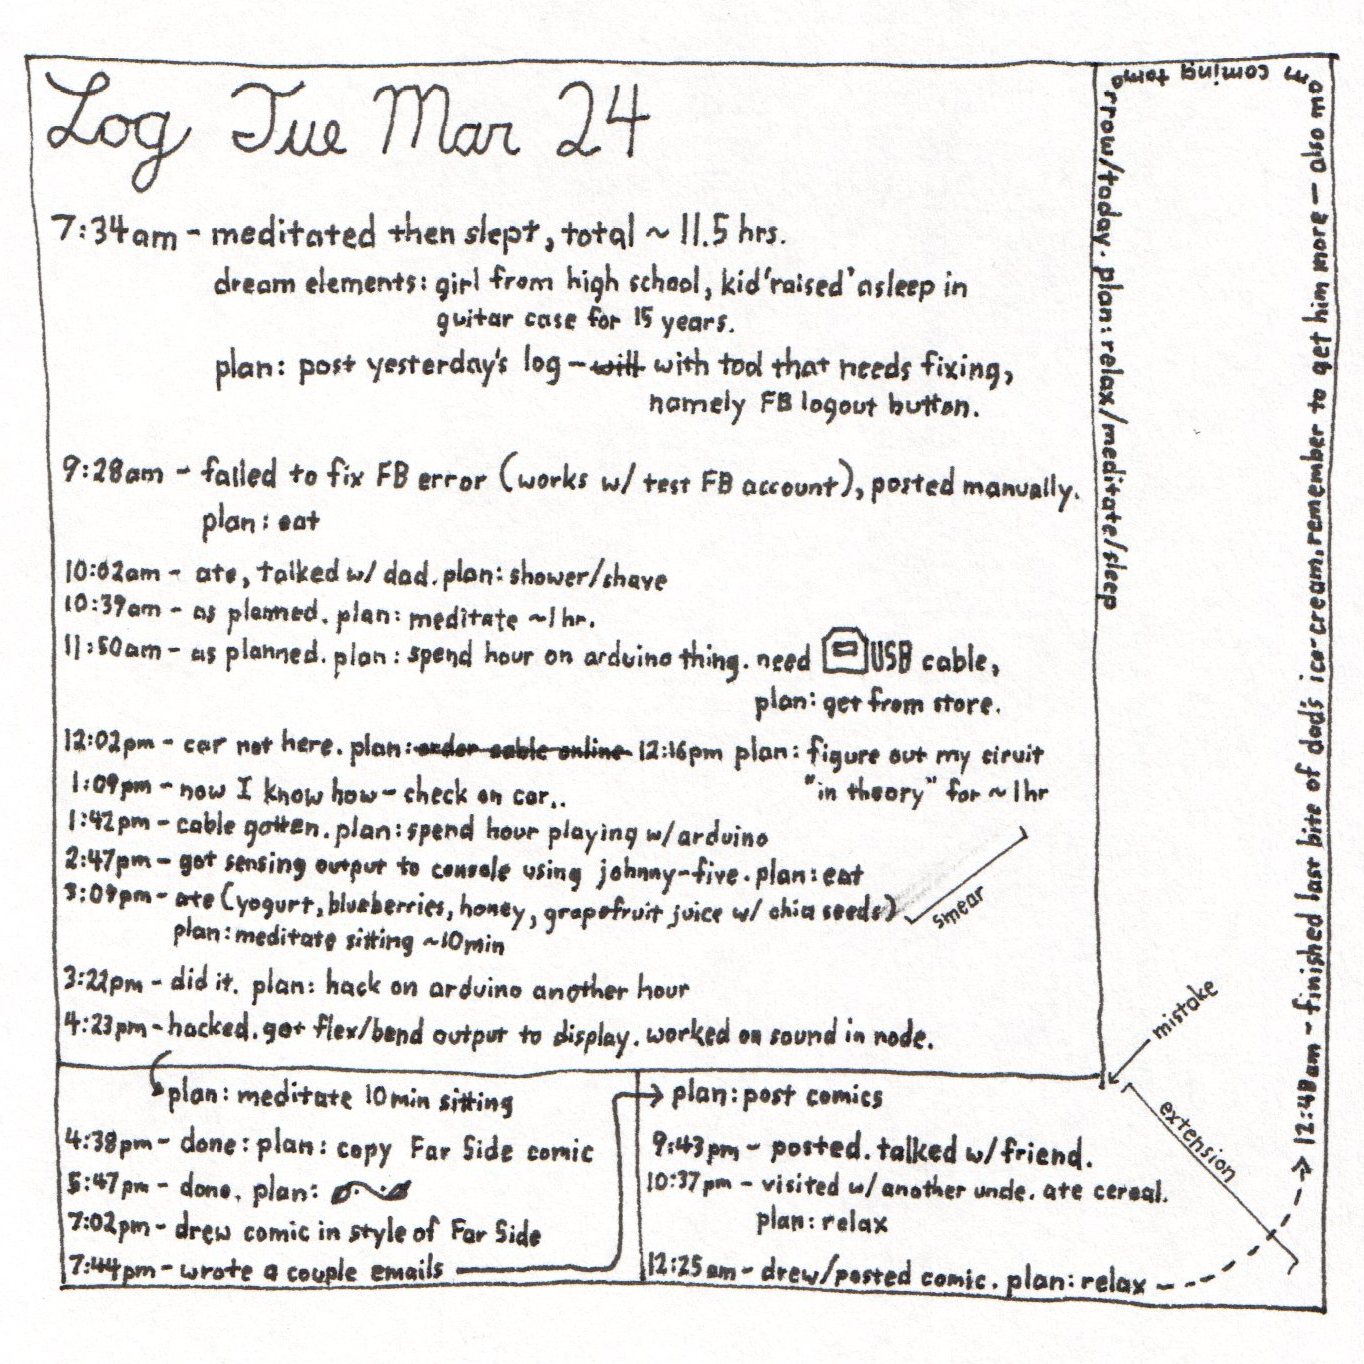 Log Tue Mar 24
7:34am - meditated then slept, total ~ 11.5 hrs.
dream elements: girl from high school, kid 'raised' asleep in
guitar case for 15 years.
plan: post yesterday's log - will with tool that needs fixing,
namely FB logout button.
9:28am - failed to fix FB error (works w/ test FB account), posted manually.
plan: eat
10:02am - ate, talked w/ dad. plan: shower/shave
10:39am - as planned. plan: meditate ~1 hr.
11:50am - as planned. plan: spend hour on arduino thing. need USB cable,
plan: get from store.
12:02pm - car not here. plan: order cable online 12:16pm plan: figure out my ciruit
"in theory" for ~ 1hr
1:09pm - now I know how - check on car..
1:42pm - cable gotten. plan: spend hour playing w/ arduino
2:47pm - got sensing output to console using johnny-five. plan: eat
3:09pm - ate (yogurt, blueberries, honey, grapefruit juice w/ chia seeds)
smear
plan: meditate sitting ~10min
3:22pm - did it. plan: hack on arduino another hour
4:23pm - hacked. got flex/bend output to display. worked on sound in node.
plan: meditate 10min sitting
4:38pm - done: plan: copy Far Side comic
5:47pm - done. plan:
7:02pm - drew comic in style of Far Side
7:44pm - wrote a couple emails
plan: post comics
9:43pm - posted. talked w/ friend.
10:37pm - visited w/ another uncle. ate cereal.
plan: relax
12:25am - drew/posted comic. plan: relax
mistake
extension
12:48am - finished last bite of dad's ice-cream. remember to get him more - also mo
m coming tomo
rrow/today. plan: relax/meditate/sleep